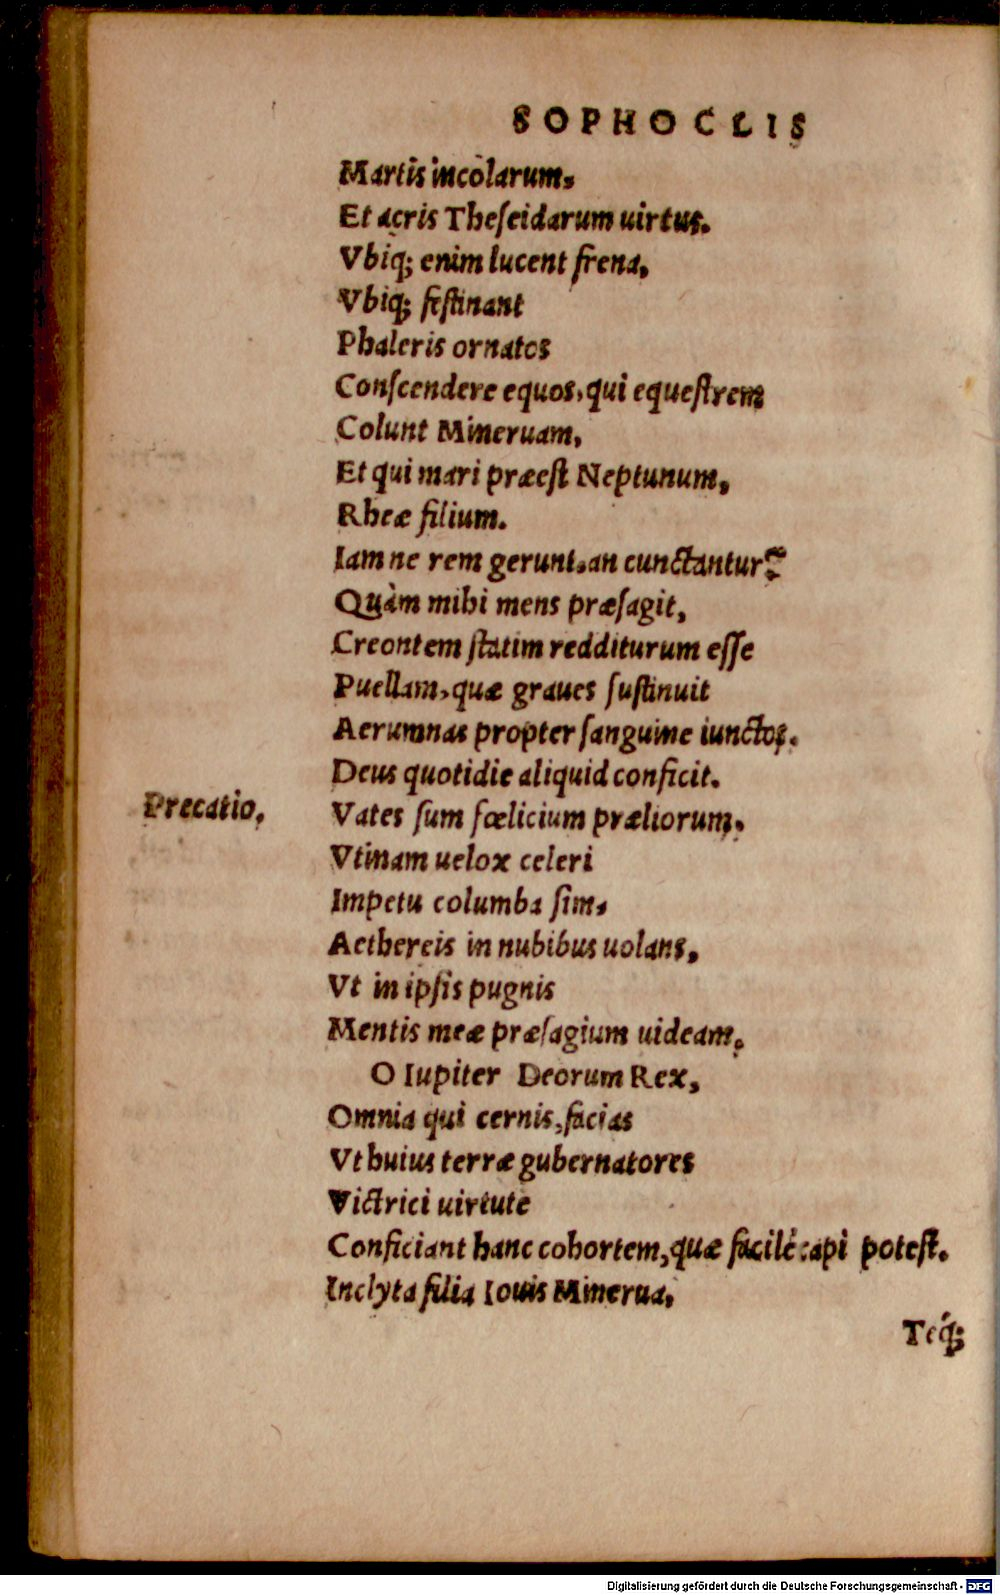 SOPHOCLIS
Martis incolarum,
Et acris Theſeidarum uirtus.
Vbiq; enim lucent frena,
Vbiq; feſtinant
Phaleris ornatos
Conſcendere equos, qui equeſtrem
Colunt Mineruam,
Et qui mari præeſt Neptunum,
Rheæ filium.
Iam ne rem gerunt, an cunctantur?
Quàm mihi mens præſagit,
Creontem ſtatim redditurum eſſe
Puellam, quæ graues ſuſtinuit
Aerumnas propter ſanguine iunctos.
Deus quotidie aliquid conficit.
Precatio. Vates ſum fœlicium præliorum.
Vtinam uelox celeri
Impetu columba ſim,
Aethereis in nubibus uolans,
Vt in ipſis pugnis
Mentis meæ præſagium uideam.
O Iupiter Deorum Rex,
Omnia qui cernis, facias
Vt huius terræ gubernatores
Victrici uirtute
Conficiant hanc cohortem, quæ facilè capi poteſt.
Inclyta filia Iouis Minerua,
Teq́;
Digitalisierung gefördert durch die Deutsche Forschungsgemeinschaft - DFG